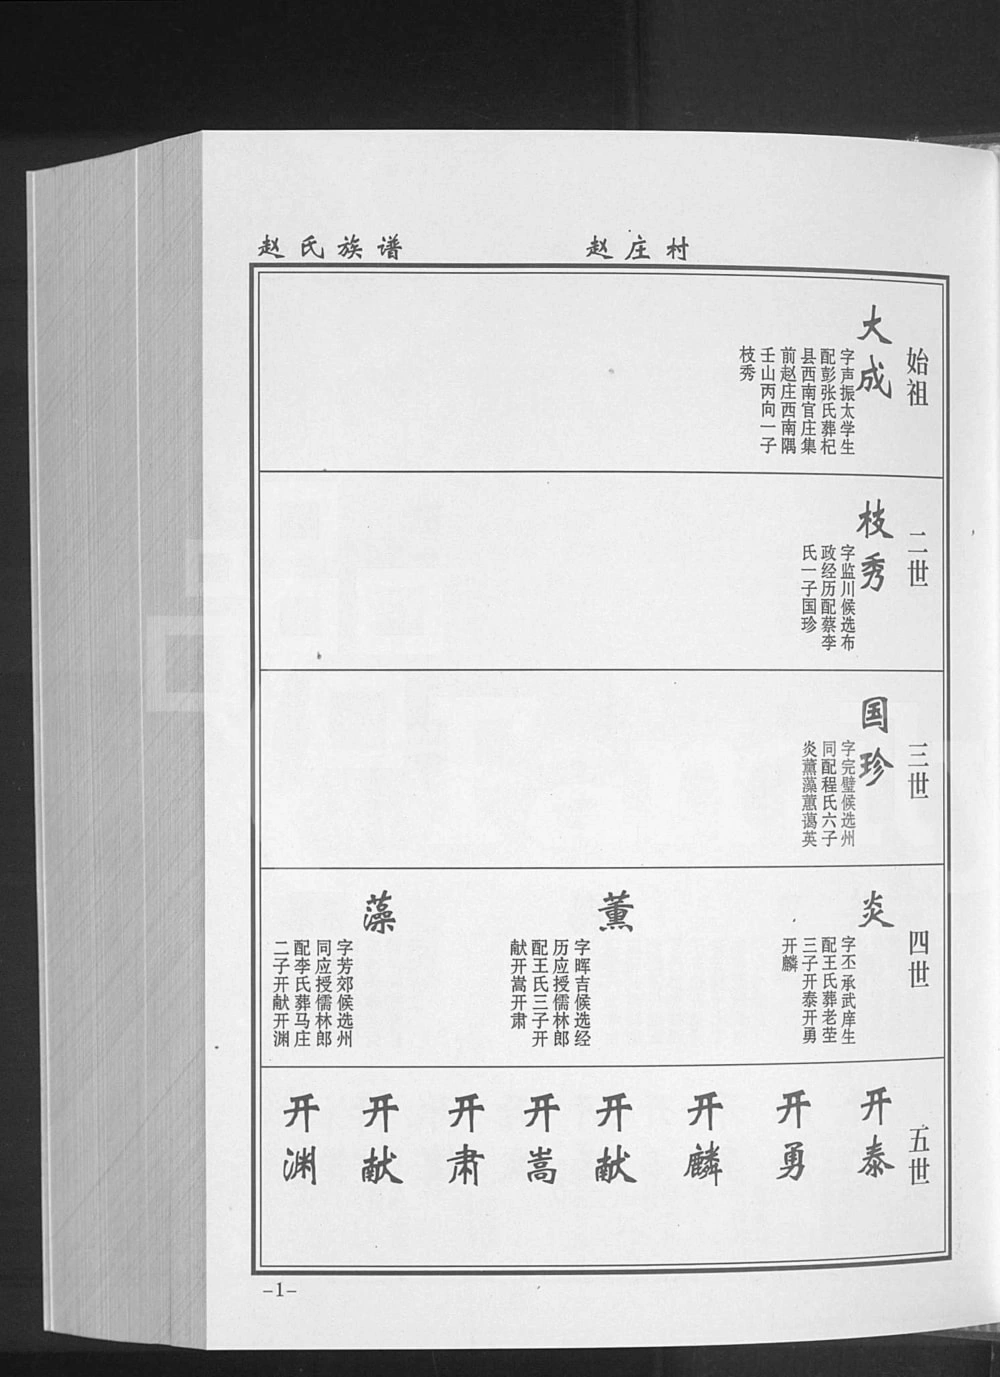 赵氏族谱
赵庄村
始祖
大成
字声振太学生
配彭张氏葬杞
县西南官庄集
前赵庄西南隅
壬山丙向一子
枝秀
二世
枝秀
字监川候选布
政经历配蔡李
氏一子国珍
三世
国珍
字完璧候选州
同配程氏六子
炎薰藻蕙蔼英
四世
炎
字丕承武庠生
配王氏葬老茔
三子开泰开勇
开麟
薰
字晖吉候选经
历应授儒林郎
配王氏三子开
献开嵩开肃
藻
字芳郊候选州
同应授儒林郎
配李氏葬马庄
二子开献开渊
五世
开泰
开勇
开麟
开献
开嵩
开肃
开献
开渊
-1-